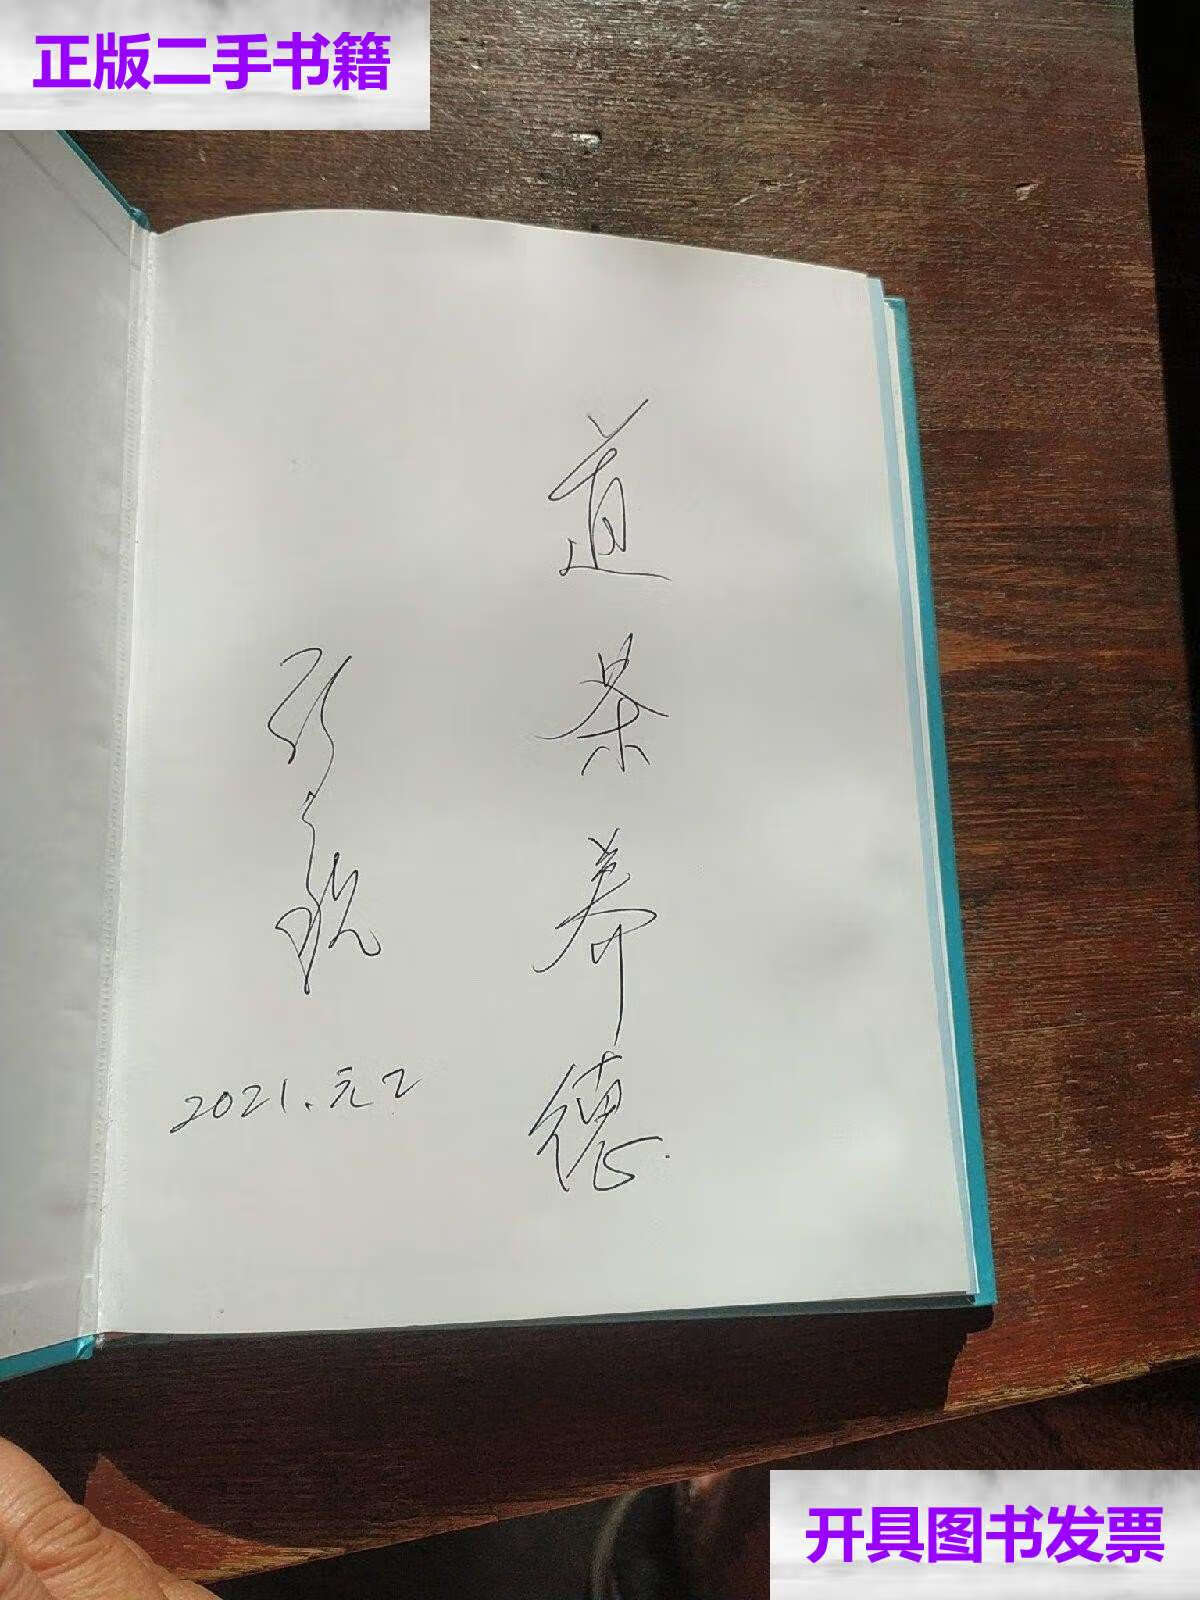 正版二手书籍
道茶养德
2021.元2
开具图书发票